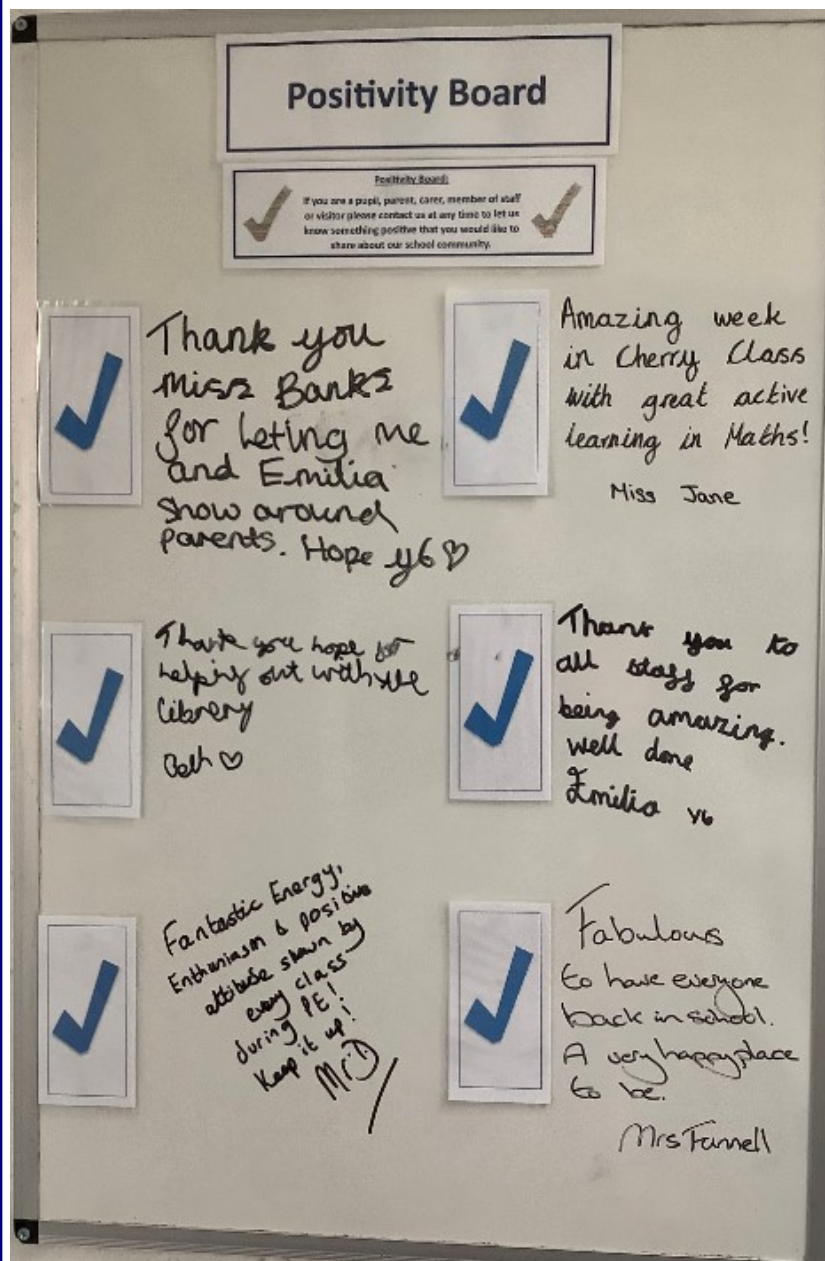 Positivity Board
Positivity Board:
If you are a pupil, parent, carer, member of staff
or visitor please contact us at any time to let us
know something positive that you would like to
share about our school community.
Thank you
Miss Banks
for Leting me
and Emilia
show around
parents. Hope y6 ♡
Amazing week
in Cherry Class
with great active
learning in Maths!
Miss Jane
Thank you hope for
helping out with the
librery
Beth ♡
Thank you to
all staff for
being amazing.
well done
Emilia Y6
Fantastic Energy,
Enthusiasm & positive
attitude shown by
every class
during PE!
Keep it up!
Mr D
Fabulous
to have everyone
back in school.
A very happy place
to be.
Mrs Farrell